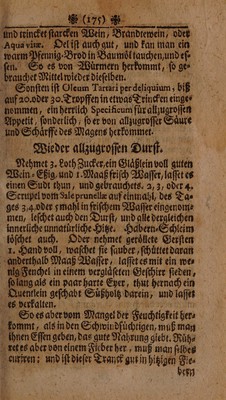 (175)
und trincket starcken Wein, Brandtewein, oder
Aqua vitæ. Oel ist auch gut, und kan man ein
warm Pfennig-Brod in Baumöl tauchen, und es-
sen. So es von Würmern herkommt, so ge-
brauchet Mittel wieder dieselben.
Sonsten ist Oleum Tartari per deliquium, biß
auf 20. oder 30. Tropffen in etwas Trincken einge-
nommen, ein herrlich Specificum für allzugrossen
Appetit, sonderlich, so er von allzugrosser Säure
und Schärffe des Magens herkommet.
Wieder allzugrossen Durst.
Nehmet 3. Loth Zucker, ein Gläßlein voll guten
Wein-Eßig, und 1. Maaß frisch Wasser, lasset es
einen Sudt thun, und gebrauchets. 2. 3. oder 4.
Scrupel vom Sale prunellæ auf einmahl, des Ta-
ges 3. 4. oder 5 mahl in frischem Wasser eingenom-
men, leschet auch den Durst, und alle dergleichen
innerliche unnatürliche Hitze. Habern-Schleim
löschet auch. Oder nehmet geröllete Gersten
1. Hand voll, waschet sie sauber, schüttet daran
anderthalb Maaß Wasser, lasset es mit ein we-
nig Fenchel in einem verglaseten Geschirr sieden,
so lang als ein paar harte Eyer, thut hernach ein
Quentlein geschabt Süßholtz darein, und lasset
es verkalten.
So es aber vom Mangel der Feuchtigkeit her-
kommt, als in den Schwindsüchtigen, muß man
ihnen Essen geben, das gute Nahrung giebt. Rüh-
ret es aber von einem Fieber her, muß man selbes
curiren; und ist dieser Tranck gut in hitzigen Fie-
bern